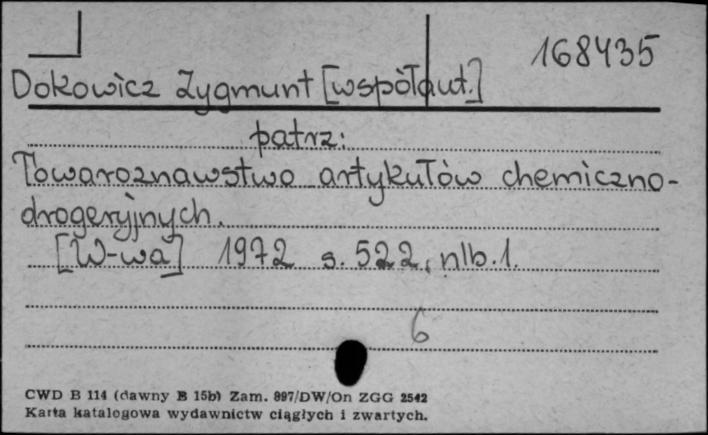 168435
Dokowicz Zygmunt [współaut.]
patrz:
Towaroznawstwo artykułów chemiczno-
drogeryjnych.
[W-wa] 1972 s. 522, nlb. 1.
6
CWD B 114 (dawny B 15b) Zam. 897/DW/On ZGG 2542
Karta katalogowa wydawnictw ciągłych i zwartych.